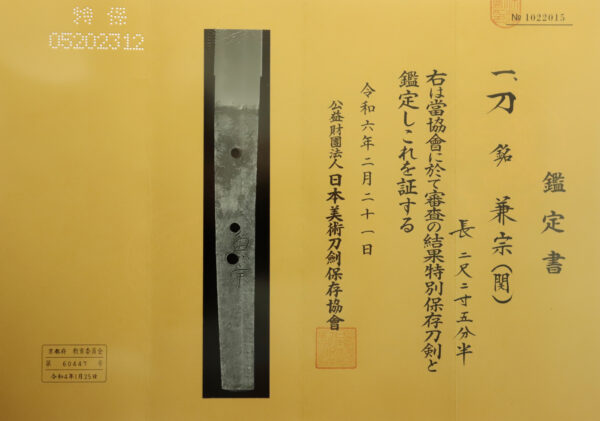 特保
05202312
№ 1022015
鑑定書
一、刀 銘 兼宗(関)
長 二尺二寸五分半
右は當協會に於て審査の結果特別保存刀剣と
鑑定しこれを証する
令和六年二月二十一日
公益財團法人 日本美術刀劍保存協會
京都府 教育委員会
第 60447 号
令和4年1月25日